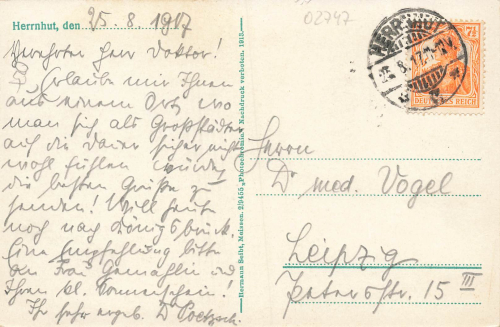 Herrnhut, den 25. 8. 1917
Verehrter Herr Doktor!
Erlaube mir Ihnen
aus einem Ort, wo
man sich als Großstädter
auf die Dauer sicher nicht
wohl fühlen würde,
die besten Grüße zu
senden! Will heute
noch nach Königsbrück.
Eine Empfehlung bitte
der Frau Gemahlin und
Ihrem kl. Sonnenschein!
Ihr sehr ergeb. D Poetzsch.
Hermann Seibt, Meissen. 2/9455 „Photochromie“. Nachdruck verboten. 1913.
02747
HERRNHUT
25. 8. 17.
7½
DEUTSCHES REICH
Herrn
Dr med. Vogel
Leipzig
Petersstr. 15 III